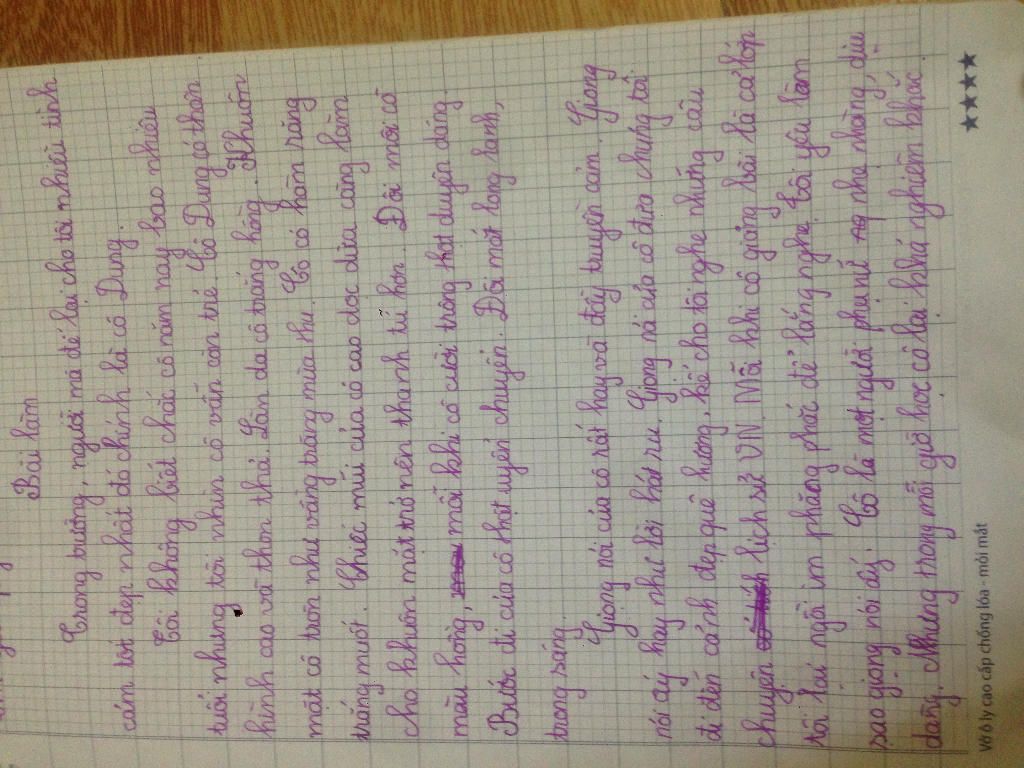 Bài làm
Trong trường, người mà để lại cho tôi nhiều tình
cảm tốt đẹp nhất đó chính là cô Dung.
Tôi không biết chắc cô năm nay bao nhiêu
tuổi nhưng tôi nhìn cô vẫn còn trẻ. Cô Dung có thân
hình cao và thon thả. Làn da cô trắng hồng. Khuôn
mặt cô tròn như vầng trăng mùa thu. Cô có hàm răng
trắng muốt. Chiếc mũi của cô cao dọc dừa càng làm
cho khuôn mặt trở nên thanh tú hơn. Đôi môi cô
màu hồng, mỗi khi cô cười trông thật duyên dáng.
Bước đi của cô thật uyển chuyển. Đôi mắt long lanh,
trong sáng.
Giọng nói của cô rất hay và đầy truyền cảm. Giọng
nói ấy hay như lời hát ru. Giọng nó của cô đưa chúng tôi
đi đến cảnh đẹp quê hương, kể cho tôi nghe những câu
chuyện lịch sử VN. Mỗi khi cô giảng bài là cả lớp
tôi lại ngồi im phăng phắc để lắng nghe. Tôi yêu làm
sao giọng nói ấy. Cô là một người phụ nữ nhẹ nhàng, dịu
dàng. Nhưng trong mỗi giờ học cô lại khá nghiêm khắc
Vở ô ly cao cấp chống lóa - mỏi mắt